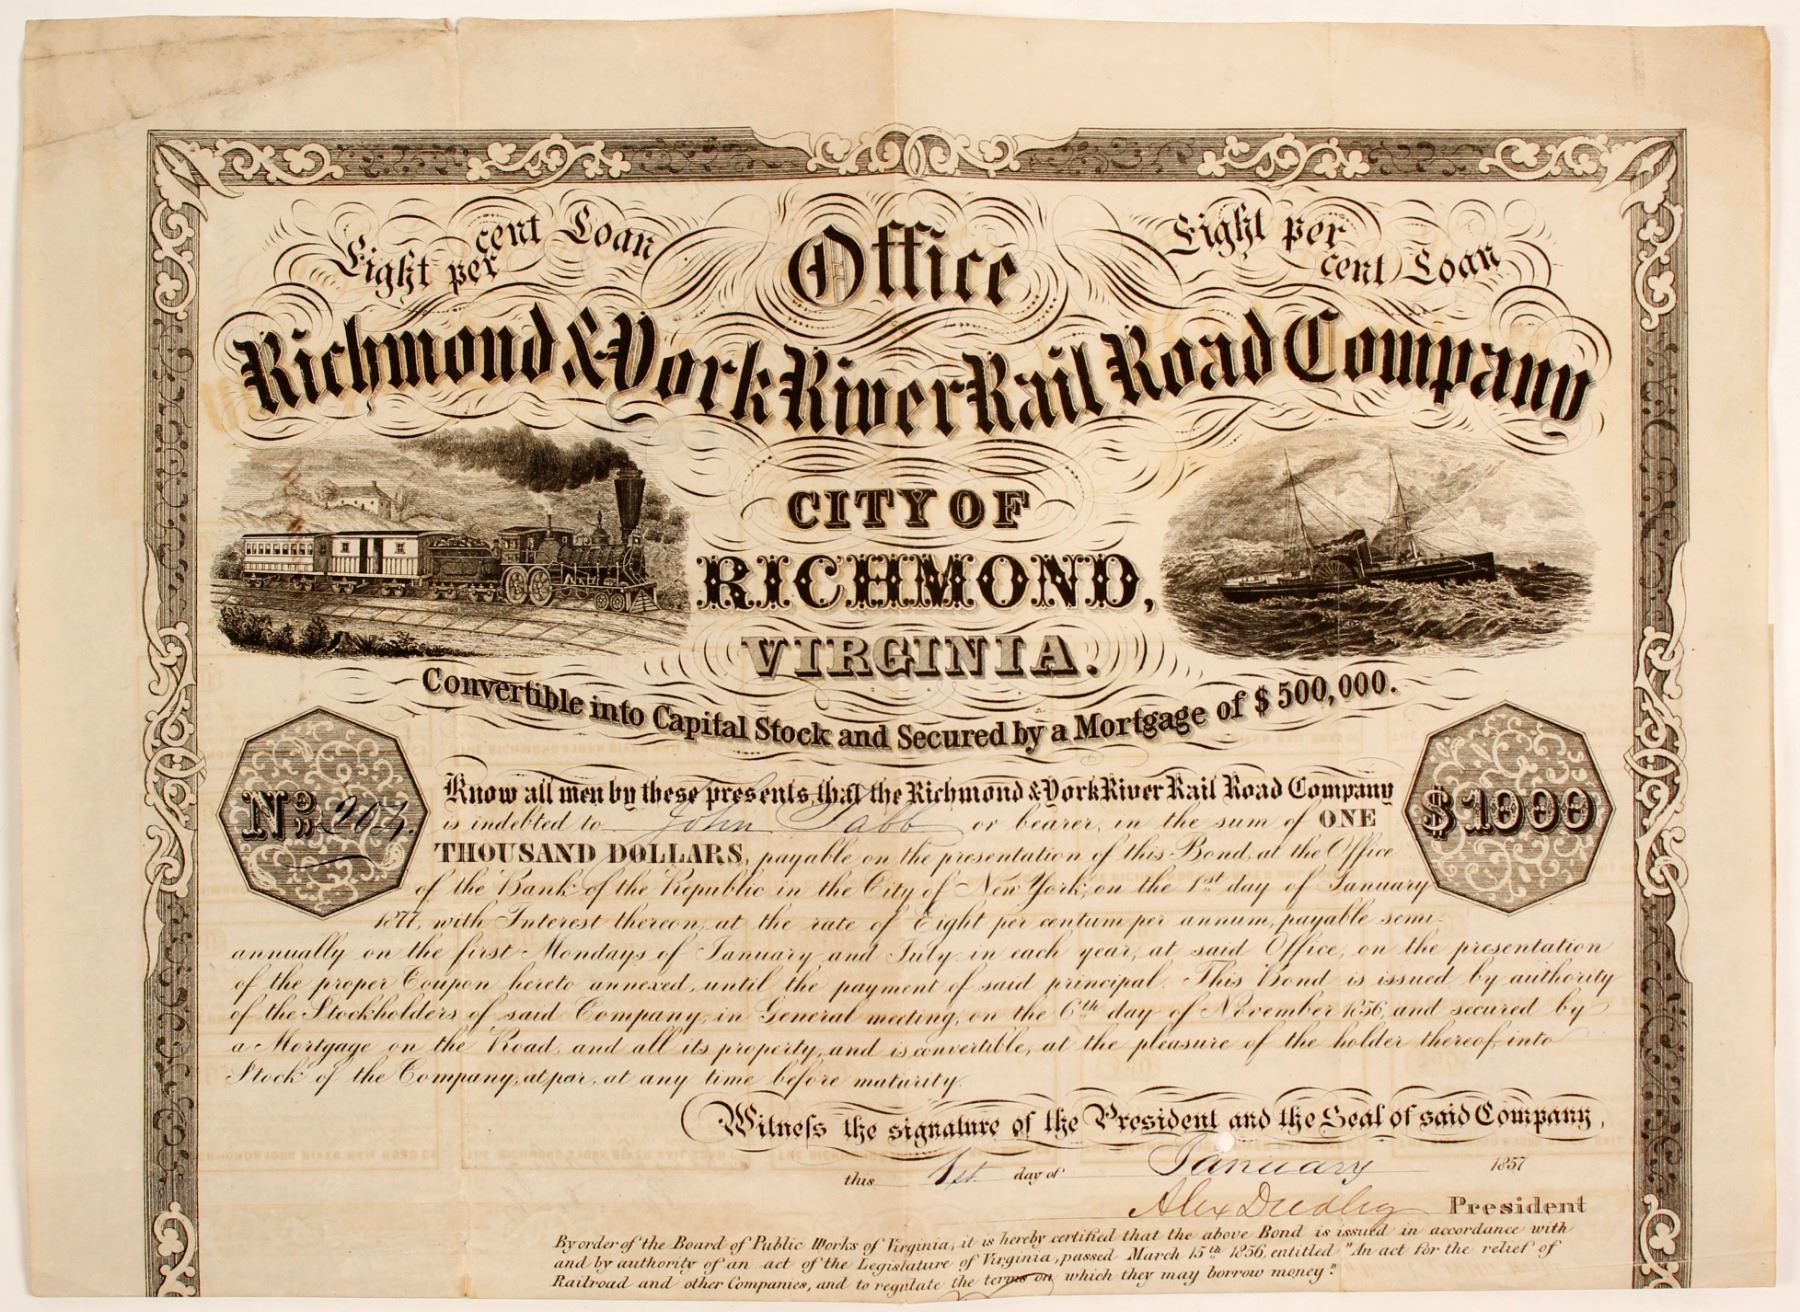 Eight per cent Loan
Office
Eight per cent Loan
Richmond & York River Rail Road Company
CITY OF
RICHMOND,
VIRGINIA.
Convertible into Capital Stock and Secured by a Mortgage of $500,000.
No.
$1000
Know all men by these presents, that the Richmond & York River Rail Road Company
is indebted to John Tabb or bearer, in the sum of ONE
THOUSAND DOLLARS, payable on the presentation of this Bond, at the Office
of the Bank of the Republic in the City of New York, on the 1st day of January
1877, with Interest thereon, at the rate of Eight per centum per annum, payable semi-
annually on the first Mondays of January and July in each year, at said Office, on the presentation
of the proper Coupon hereto annexed, until the payment of said principal. This Bond is issued by authority
of the Stockholders of said Company, in General meeting, on the 6th day of November 1856, and secured by
a Mortgage on the Road, and all its property, and is convertible, at the pleasure of the holder thereof, into
Stock of the Company, at par, at any time before maturity.
Witness the signature of the President and the Seal of said Company,
this 1st day of January 1857
Alex Dudley President
By order of the Board of Public Works of Virginia, it is hereby certified that the above Bond is issued in accordance with
and by authority of an act of the Legislature of Virginia, passed March 15th 1856, entitled "An act for the relief of
Railroad and other Companies, and to regulate the terms on which they may borrow money."